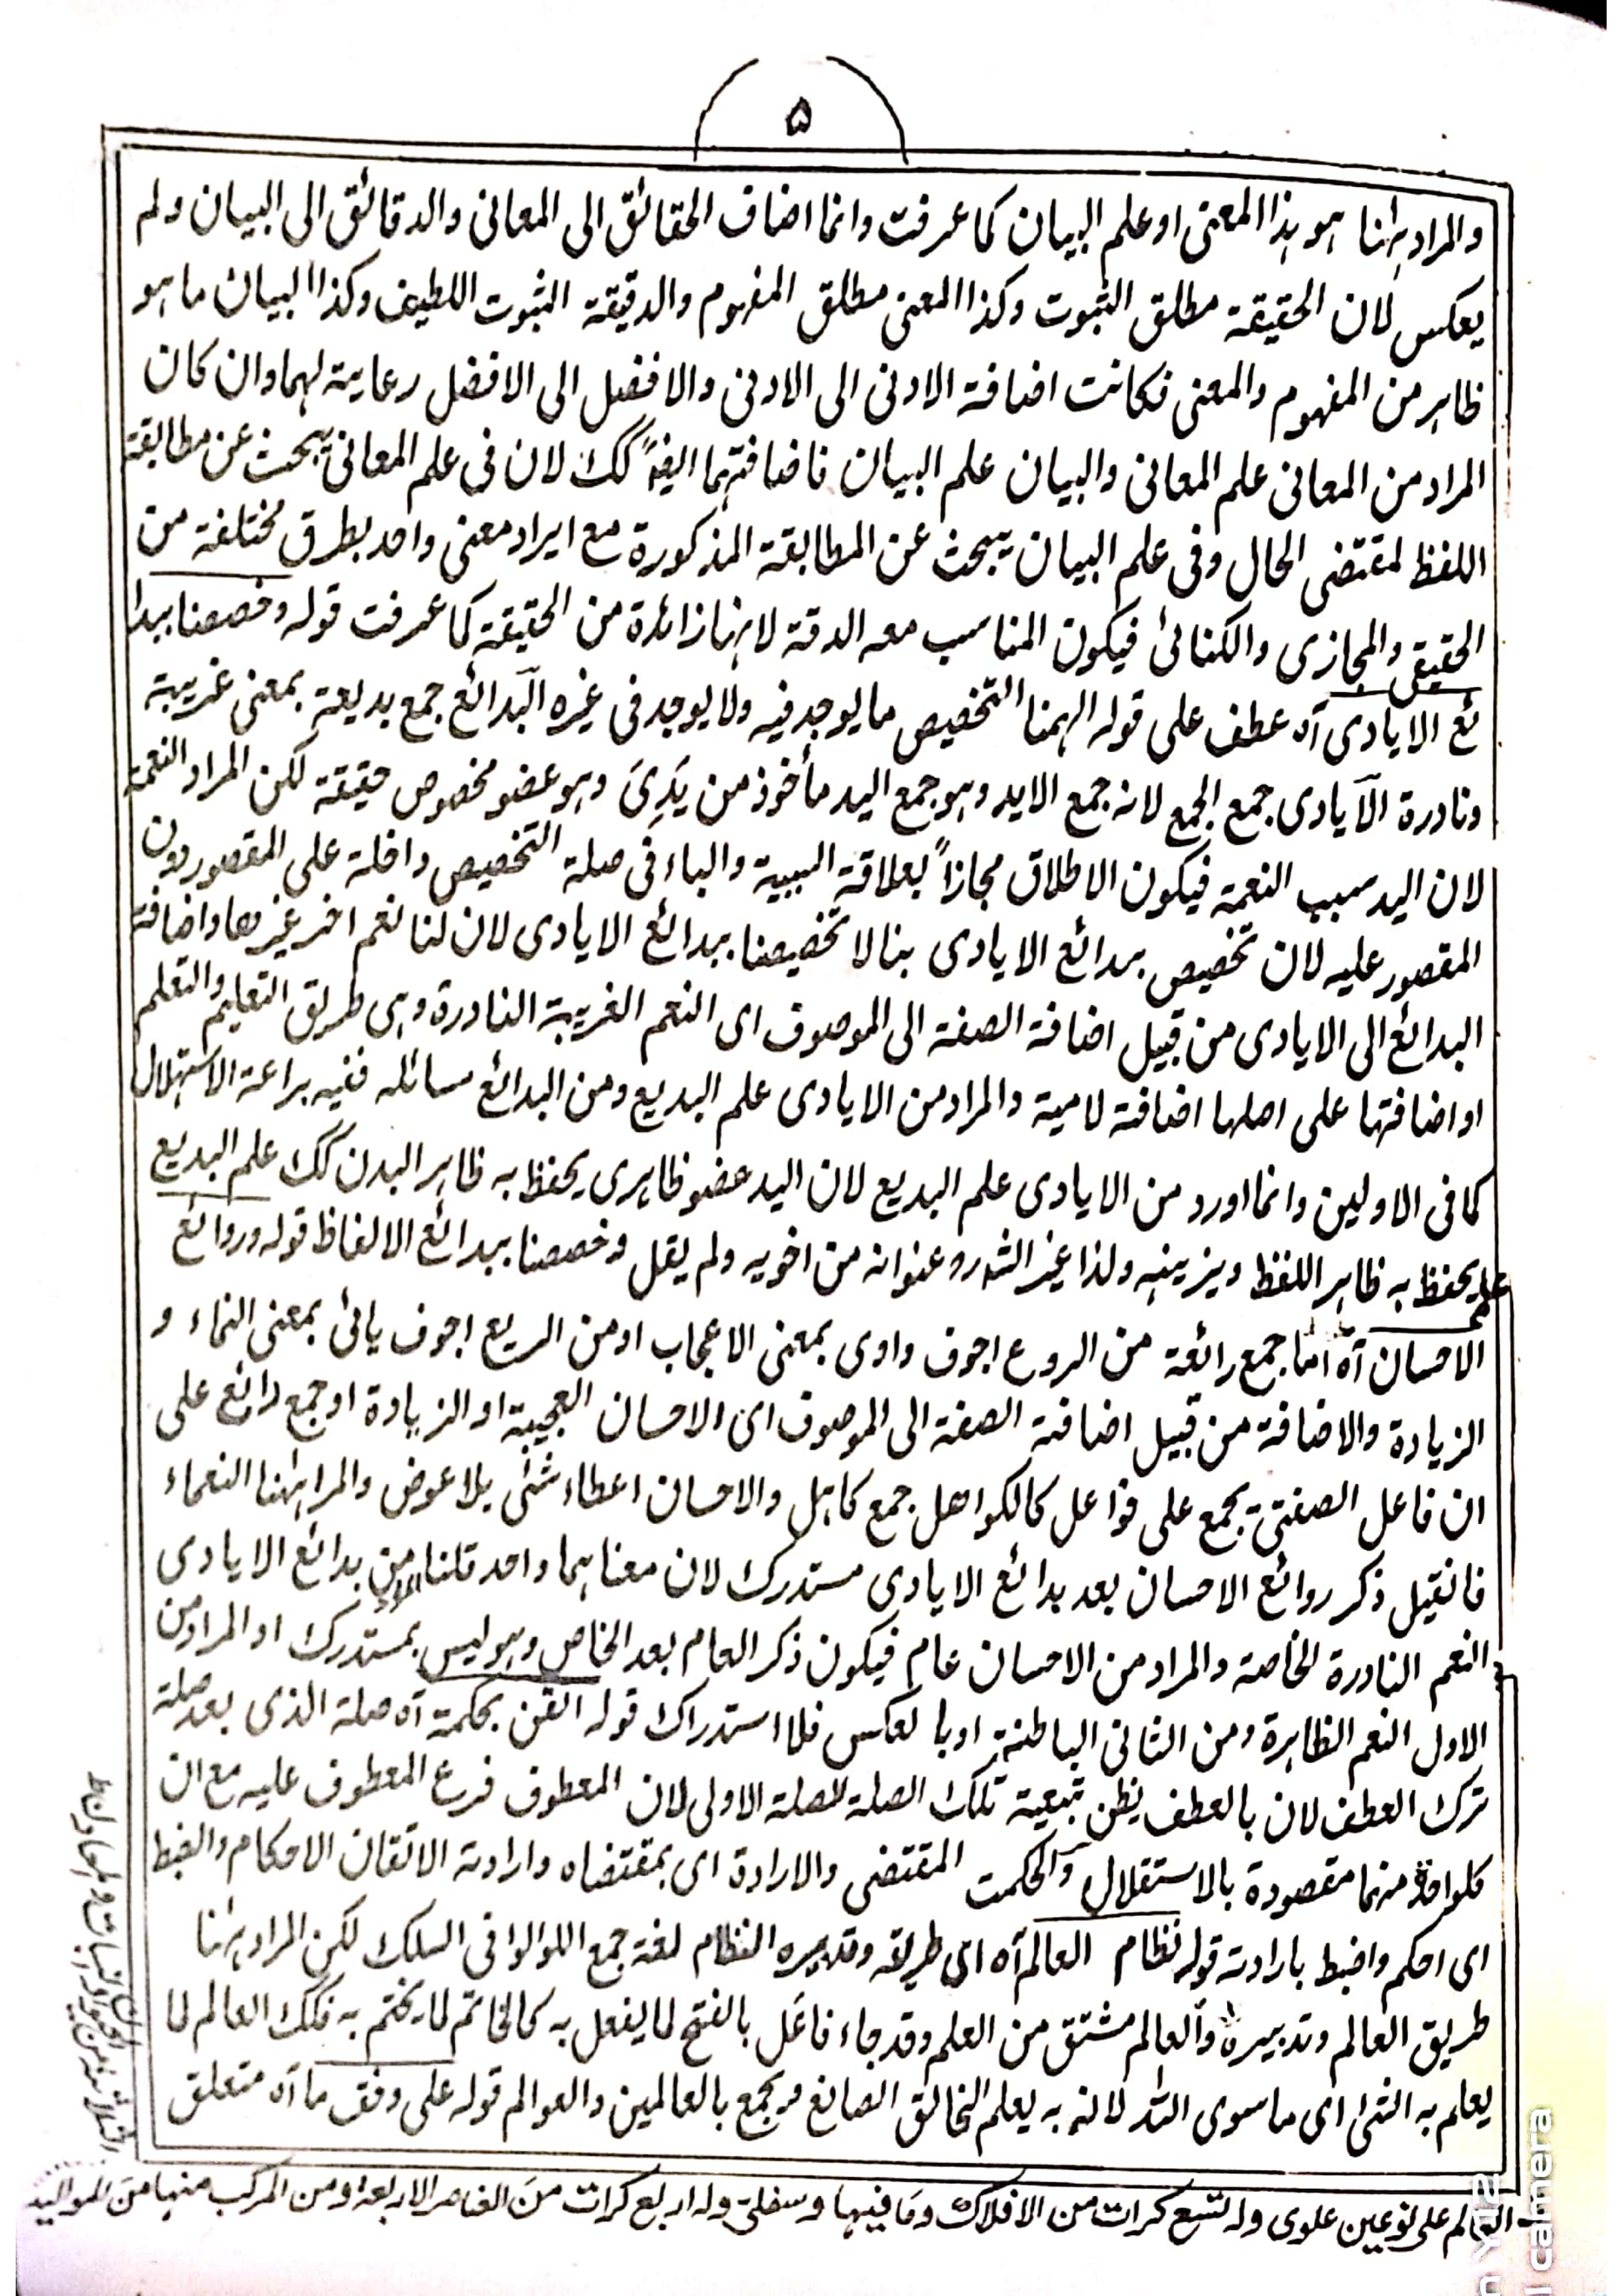 ۵
والمراد ہہنا ہو ہذا المعنی او علم البیان کما عرفت وانما اضاف الحقائق الی المعانی والدقائق الی البیان ولم
یعکس لان الحقیقۃ مطلق الثبوت وکذا المعنی مطلق المفہوم والدقیقۃ الثبوت اللطیف وکذا البیان ما ہو
ظاہر من المفہوم والمعنی فکانت اضافۃ الادنی الی الادنی والافضل الی الافضل رعایۃ لہما وان کان
المراد من المعانی علم المعانی والبیان علم البیان فاضافتہما ایضاً کک لان فی علم المعانی یبحث عن مطابقۃ
اللفظ لمقتضی الحال وفی علم البیان یبحث عن المطابقۃ المذکورۃ مع ایراد معنی واحد بطرق مختلفۃ من
الحقیقی والمجازی والکنائی فیکون المناسب معہ الدقۃ لانہا زائدۃ من الحقیقۃ کما عرفت قولہ وخصصنا ببدا
ئع الایادی آہ عطف علی قولہ الہمنا التخصیص ما یوجد فیہ ولا یوجد فی غیرہ البدائع جمع بدیعۃ بمعنی غریبۃ
ونادرۃ الایادی جمع الجمع لانہ جمع الاید وہو جمع الید مأخوذ من یَدِیَ وہو عضو مخصوص حقیقۃ لکن المراد النعمۃ
لان الید سبب النعمۃ فیکون الاطلاق مجازاً بعلاقۃ السببیۃ والباء فی صلۃ التخصیص داخلۃ علی المقصور دون
المقصور علیہ لان تخصیص بدائع الایادی بنا لا تخصیصنا ببدائع الایادی لان لنا نعم اخر غیرھا واضافۃ
البدائع الی الایادی من قبیل اضافۃ الصفۃ الی الموصوف ای النعم الغریبۃ النادرۃ وہی طریق التعلیم والتعلم
او اضافتہا علی اصلہا اضافۃ لامیۃ والمراد من الایادی علم البدیع ومن البدائع مسائلہ ففیہ براعۃ الاستہلال
کما فی الاولین وانما اورد من الایادی علم البدیع لان الید عضو ظاہری یحفظ بہ ظاہر البدن کک علم البدیع
علم یحفظ بہ ظاہر اللفظ ویزینہ ولذا غیر الشہ رو عنوانہ من اخویہ ولم یقل وخصصنا ببدائع الالفاظ قولہ وروائع
الاحسان آہ اما جمع رائعۃ من الروع اجوف واوی بمعنی الاعجاب او من الریع اجوف یائی بمعنی النماء و
الزیادۃ والاضافۃ من قبیل اضافۃ الصفۃ الی الموصوف ای الاحسان العجیبۃ او الزیادۃ او جمع رائع علی
ان فاعل الصفتی یجمع علی فواعل کالکواھل جمع کاہل والاحسان اعطاء شئ بلا عوض والمراد ہہنا النعماء
فانقیل ذکر روائع الاحسان بعد بدائع الایادی مستدرک لان معناہما واحد قلنا المراد من بدائع الایادی
النعم النادرۃ الخاصۃ والمراد من الاحسان عام فیکون ذکر العام بعد الخاص وہو لیس بمستدرک او المراد من
الاول النعم الظاہرۃ ومن الثانی الباطنۃ او بالعکس فلا استدراک قولہ اتقن بحکمۃ آہ صلۃ الذی بعد صلۃ
ترک العطف لان بالعطف یظن تبعیۃ تلک الصلۃ للصلۃ الاولی لان المعطوف فرع المعطوف علیہ مع ان
کلواحد منہما مقصودۃ بالاستقلال والحکمت المقتضی والارادۃ ای بمقتضاہ وارادتہ الاتقان الاحکام والضبط
ای احکم واضبط بارادتہ قولہ نظام العالم آہ ای طریقہ وتدبیرہ النظام لغۃ جمع اللوالوا فی السلک لکن المراد ہہنا
طریق العالم وتدبیرہ والعالم مشتق من العلم وقد جاء فاعَل بالفتح لما یفعل بہ کالخاتم لما یختم بہ فکک العالم لما
یعلم بہ الشئ ای ما سوی اللہ لانہ بہ یعلم الخالق الصانع ویجمع بالعالمین والعوالم قولہ علی وفق ما آہ متعلق
العالم علی نوعین علوی ولہ تسع کرات من الافلاک وما فیہا وسفلی ولہ اربع کرات من العناصر الاربعۃ ومن المرکب منہا من الموالید
camera